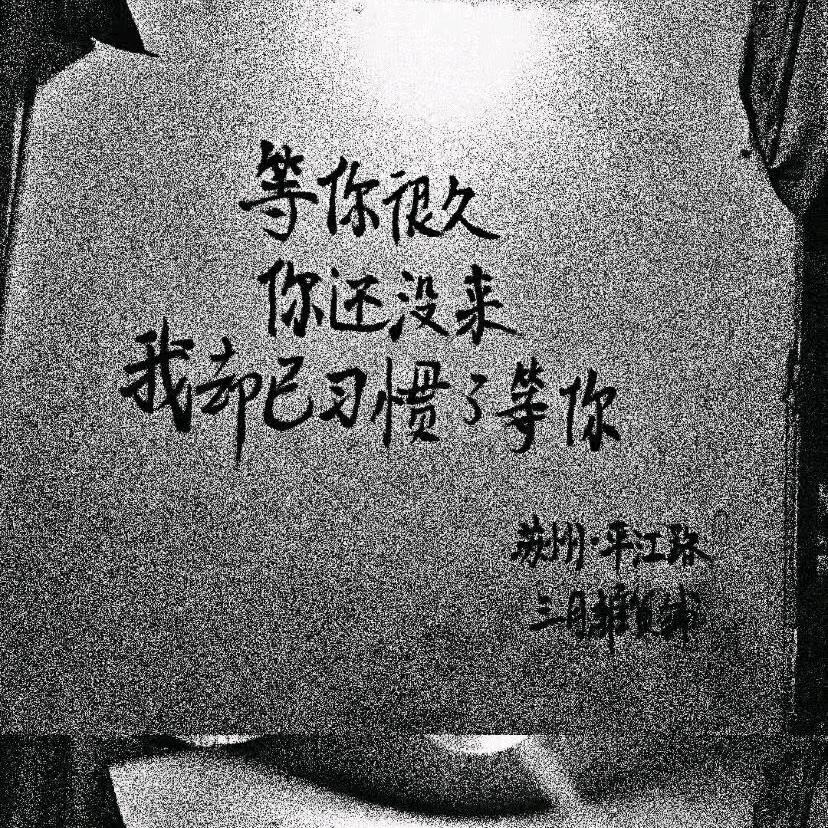 等你很久
你还没来
我却已习惯了等你
苏州·平江路
三月杂货铺